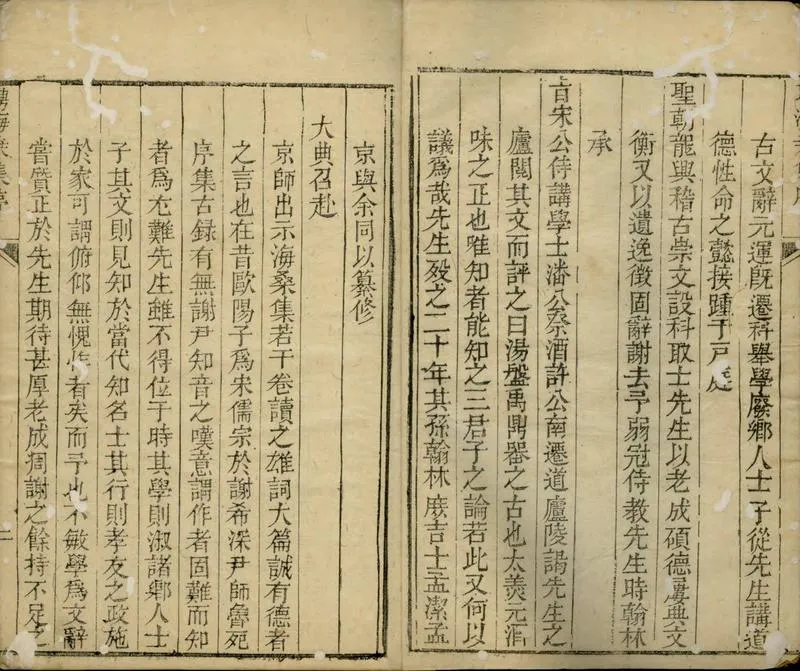 古文辭元運既遷科舉學廢鄉人士子從先生講道
德性命之懿接踵于戶
聖朝龍興稽古崇文設科取士先生以老成碩德屢典文
衡又以遺逸徵固辭謝去予弱冠侍教先生時翰林
承
旨宋公侍講學士潘公祭酒許公南遷道廬陵謁先生之
廬閱其文而評之曰湯盤禹鼎器之古也太羹元酒
味之正也唯知者能知之三君子之論若此又何以
議爲哉先生歿之二十年其孫翰林庶吉士孟潔孟
京與余同以纂修
大典召赴
京師出示海桑集若干卷讀之雄詞大篇誠有德者
之言也在昔歐陽子爲宋儒宗於謝希深尹師魯死
序集古録有無謝尹知音之嘆意謂作者固難而知
者爲尤難先生雖不得位于時其學則淑諸鄉人士
子其文則見知於當代知名士其行則孝友之政施
於家可謂俯仰無愧怍者矣而予也不敏學爲文辭
嘗質正於先生期待甚厚老成凋謝之餘持不足之
海桑集序